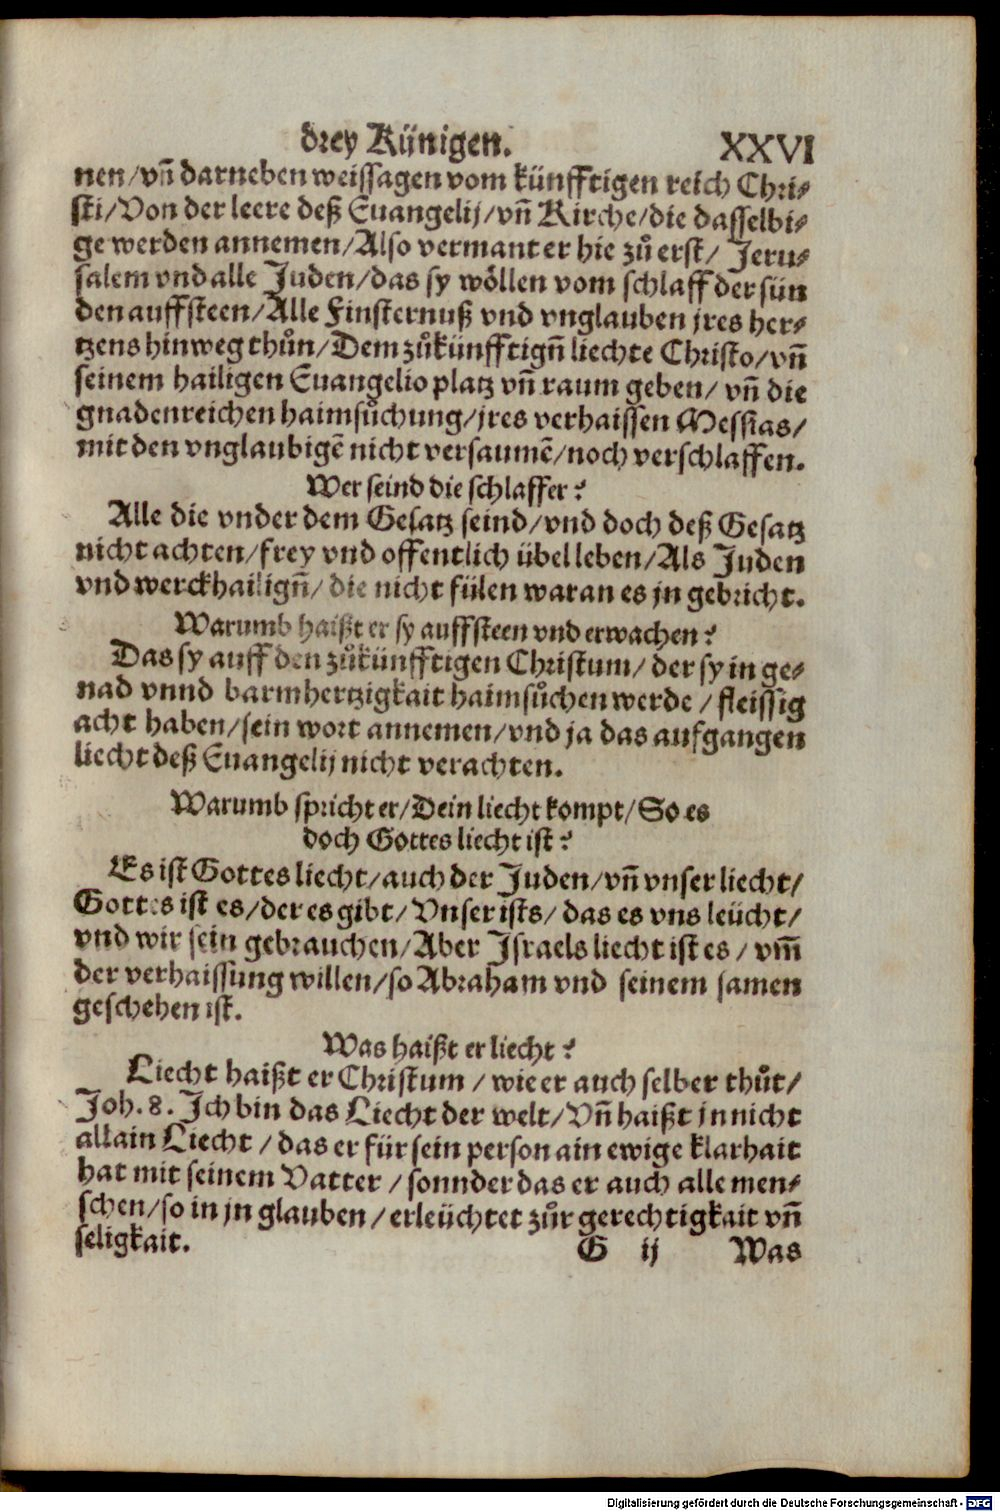 drey Künigen. XXVI
nen/vn̄ darneben weissagen vom künfftigen reich Chri⸗
sti/Von der leere deß Euangelij/vn̄ Kirche/die dasselbi⸗
ge werden annemen/Also vermant er hie zů erst/ Jeru⸗
salem vnd alle Juden/das sy wöllen vom schlaff der sün
den auffsteen/Alle Finsternuß vnd vnglauben jres her⸗
tzens hinweg thůn/Dem zůkünfftign̄ liechte Christo/vn̄
seinem hailigen Euangelio platz vn̄ raum geben/ vn̄ die
gnadenreichen haimsůchung/jres verhaissen Messias/
mit den vnglaubigē nicht versaumē/noch verschlaffen.
Wer seind die schlaffer?
Alle die vnder dem Gesatz seind/vnd doch deß Gesatz
nicht achten/frey vnd offentlich übel leben/Als Juden
vnd werckhailign̄/ die nicht fülen waran es jn gebricht.
Warumb haißt er sy auffsteen vnd erwachen?
Das sy auff den zůkünfftigen Christum/ der sy in ge⸗
nad vnnd barmhertzigkait haimsůchen werde / fleissig
acht haben/sein wort annemen/vnd ja das aufgangen
liecht deß Euangelij nicht verachten.
Warumb spricht er/Dein liecht kompt/So es
doch Gottes liecht ist?
Es ist Gottes liecht/auch der Juden/vn̄ vnser liecht/
Gottes ist es/der es gibt/Vnser ists/das es vns leücht/
vnd wir sein gebrauchen/Aber Jsraels liecht ist es / vm̄
der verhaissung willen/so Abraham vnd seinem samen
geschehen ist.
Was haißt er liecht?
Liecht haißt er Christum / wie er auch selber thůt/
Joh. 8. Jch bin das Liecht der welt/Vn̄ haißt jn nicht
allain Liecht / das er für sein person ain ewige klarhait
hat mit seinem Vatter / sonnder das er auch alle men⸗
schen/so in jn glauben/erleüchtet zůr gerechtigkait vn̄
seligkait. G ij Was
Digitalisierung gefördert durch die Deutsche Forschungsgemeinschaft - DFG